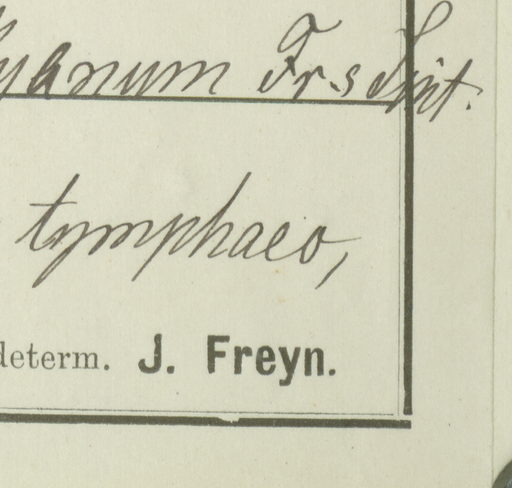 Fr. & Sint.
tymphaeo,
determ. J. Freyn.